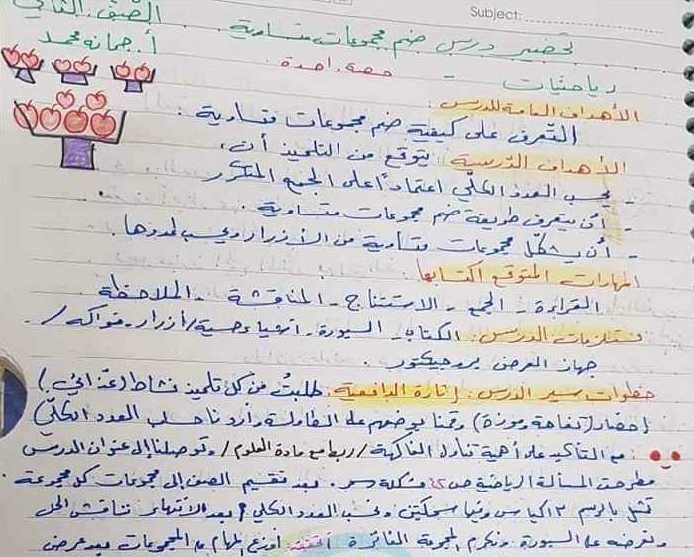 Subject:
الصف: الثاني
تحضير درس ضم مجموعات متساوية
أ. جمانة محمد
حصة: واحدة
رياضيات
الأهداف العامة للدرس:
التعرف على كيفية ضم مجموعات متساوية.
الأهداف الدرسية: يتوقع من التلميذ أن:
- يحسب العدد الكلّي اعتماداً على الجمع المتكرر
- أن يتعرف طريقة ضم مجموعات متساوية.
- أن يشكّل مجموعات متساوية من الأزرار ويحسب عددها
المهارات المتوقع اكتسابها:
القراءة - الجمع - الاستنتاج - المناقشة - الملاحظة
مستلزمات الدرس: الكتاب - السبورة - أشياء حسية / أزرار - فواكه /
جهاز العرض بروجيكتور.
خطوات سير الدرس: إثارة الدافعية: طلبتُ من كل تلميذ نشاط (غذائي)
إحضار (تفاحة وموزة) وقمنا بوضعهم على الطاولة وأردنا حساب العدد الكلّي
مع التأكيد على أهمية تناول الفاكهة / ربط مع مادة العلوم / وتوصلنا إلى عنوان الدرس
وطرحت المسألة الرياضية ص بعد تقسيم الصف إلى مجموعات كل مجموعة
تمثل بالرسم ٣ أكياس وفيها سمكتين ونحسب العدد الكلي بعد الانتهاء نناقش الحل
ونعرضه على السبورة ونكرم المجموعة الفائزة أوزع المهام على المجموعات بعد عرض